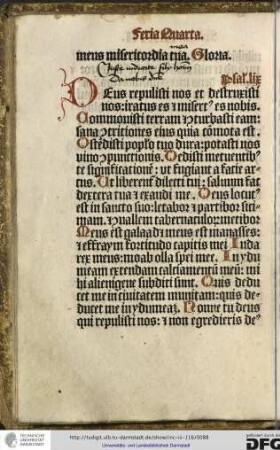 Feria Quarta.
meus misericordia mea. Gloria.
Da nobis
Psal. lix
DEus repulisti nos et destruxisti
nos: iratus es ⁊ misert⁹ es nobis.
Commouisti terram ⁊ cturbasti eam:
sana ctritiones eius quia cōmota est.
Ostēdisti pop̄lo tuo dura: potasti nos
vino cpunctionis. Dedisti metuentibꝰ
te significationē: vt fugiant a facie ar-
cus. Ut liberent dilecti tui: saluum fac
dextera tua ⁊ exaudi me. Deus locutꝰ
est in sancto suo: letabor ⁊ partibor sici-
mam. ⁊ cuallem tabernaculoꝝ metibor
Meus est galaad ⁊ meus est manasses:
⁊ effraym fortitudo capitis mei Iuda
rex meus: moab olla spei mee. In ydu-
meam extendam calciamentū meū: mi-
hi alienigene subditi sunt. Quis dedu-
cet me in ciuitatem munitam: quis de-
ducet me in ydumeaȝ. Nonne tu deus
qui repulisti nos: ⁊ non egredieris de⸗
http://tudigit.ulb.tu-darmstadt.de/show/inc-iii-116/0088
Universitäts- und Landesbibliothek Darmstadt
TECHNISCHE
UNIVERSITÄT
DARMSTADT
gefördert durch die
DFG